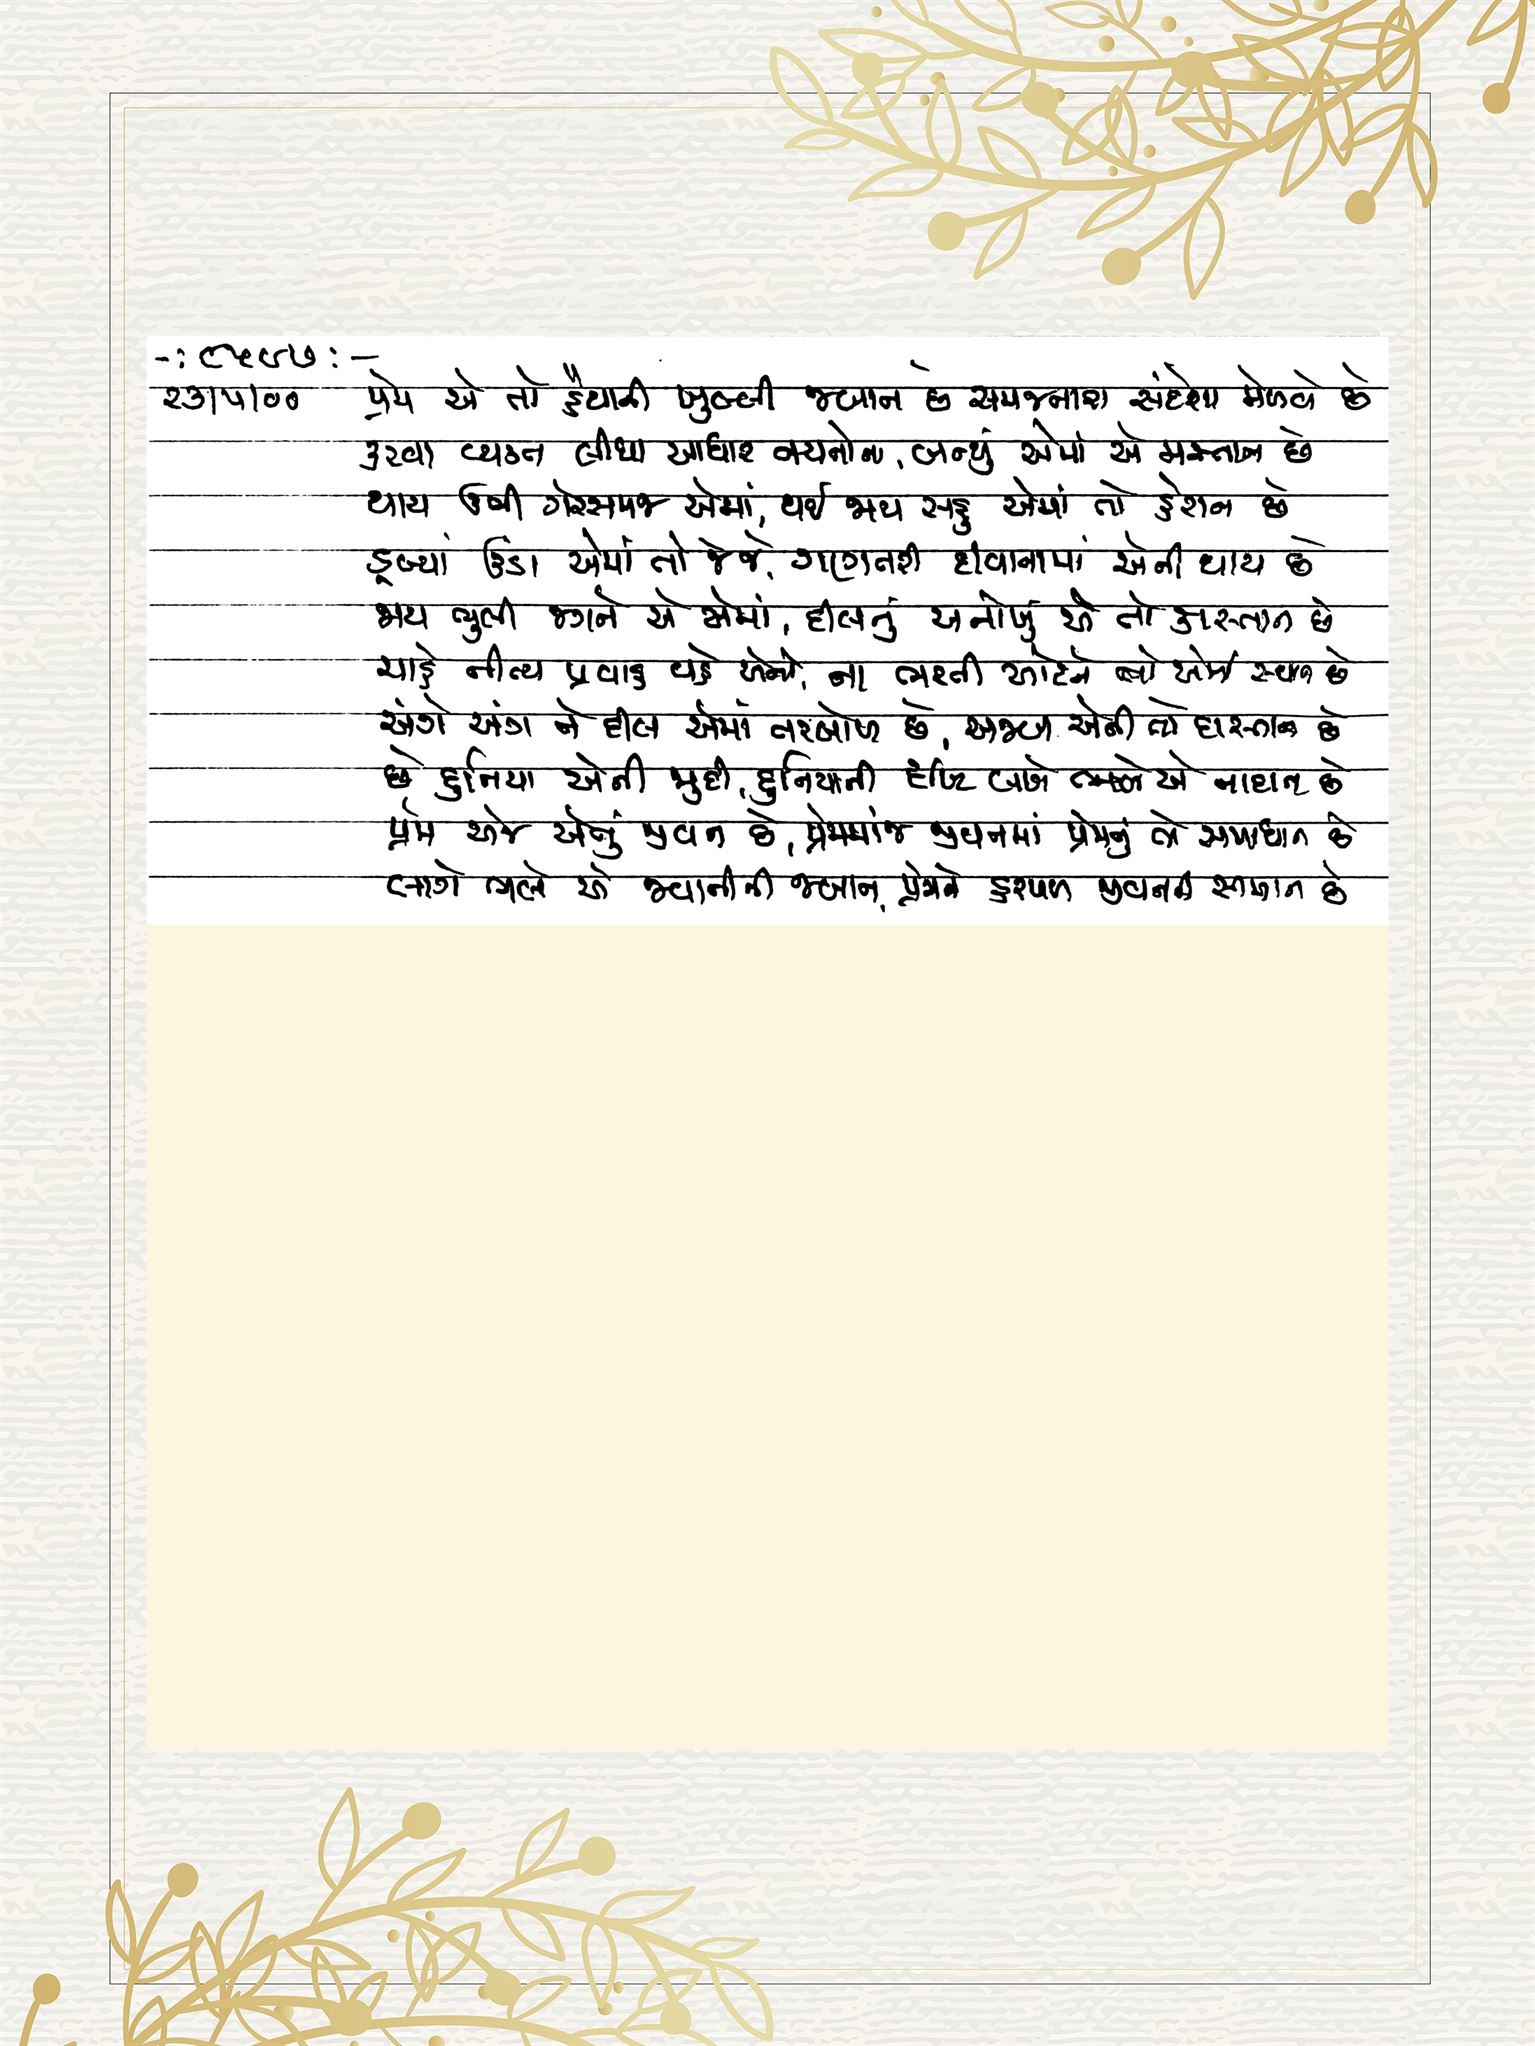 -: ૯૫૯૭ :-
૨૩/૫/૦૦ પ્રેમ એ તો હૈયાની ખુલ્લી જબાન છે સમજનારા સંદેશા મેળવે છે
કરવા વ્યક્ત લીધા આધાર વચનોના, બન્યું એમાં એ મસ્તાન છે
થાય ઉભી ગેરસમજ એમાં, થઈ જાય સહુ એમાં તો હેરાન છે
ડૂબ્યાં ઉંડા એમાં તો જેજે, ગણતરી દીવાનામાં એની થાય છે
જાય ભુલી જગને એ એમાં, દીલનું અનોખું એ તો કારસ્તાન છે
ચાહે નીત્ય પ્રવાહ વહે એનો, ના ભરતી ઓટને તો એમાં સ્થાન છે
અંગે અંગ ને દીલ એમાં તરબોળ છે, અજબ એની તો દાસ્તાન છે
છે દુનિયા એની જુદી, દુનિયાની દૃષ્ટિ લાગે ભલે એ નાદાન છે
પ્રેમ એજ એનું જીવન છે, પ્રેમમાંજ જીવનમાં પ્રેમનું તો સમાધાન છે
લાગે ભલે એ જવાનીની જબાન, પ્રેમને હરપળ જીવનની સન્માન છે